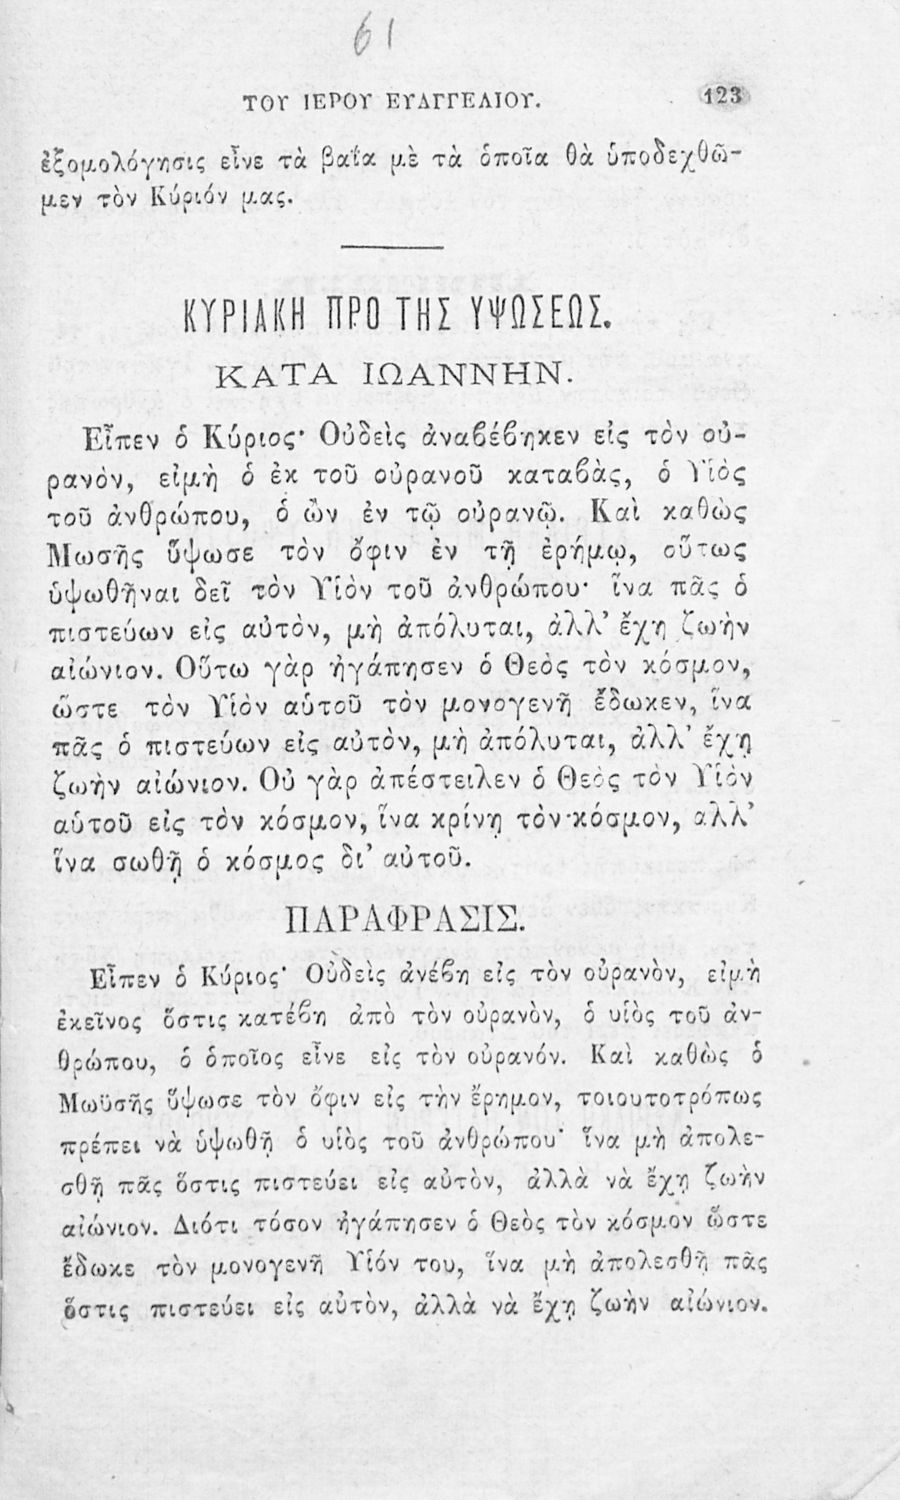 61
ΤΟΥ ΙΕΡΟΥ ΕΥΑΓΓΕΛΙΟΥ. 123
ἐξομολόγησις εἶνε τὰ βαΐα μὲ τὰ ὁποῖα θὰ ὑποδεχθῶ-
μεν τὸν Κύριόν μας.
ΚΥΡΙΑΚΗ ΠΡΟ ΤΗΣ ΥΨΩΣΕΩΣ.
ΚΑΤΑ ΙΩΑΝΝΗΝ.
Εἶπεν ὁ Κύριος· Οὐδεὶς ἀναβέβηκεν εἰς τὸν οὐ-
ρανὸν, εἰμὴ ὁ ἐκ τοῦ οὐρανοῦ καταβὰς, ὁ Υἱὸς
τοῦ ἀνθρώπου, ὁ ὢν ἐν τῷ οὐρανῷ. Καὶ καθὼς
Μωσῆς ὕψωσε τὸν ὄφιν ἐν τῇ ἐρήμῳ, οὕτως
ὑψωθῆναι δεῖ τὸν Υἱὸν τοῦ ἀνθρώπου· ἵνα πᾶς ὁ
πιστεύων εἰς αὐτὸν, μὴ ἀπόλυται, ἀλλ’ ἔχῃ ζωὴν
αἰώνιον. Οὕτω γὰρ ἠγάπησεν ὁ Θεὸς τὸν κόσμον,
ὥστε τὸν Υἱὸν αὑτοῦ τὸν μονογενῆ ἔδωκεν, ἵνα
πᾶς ὁ πιστεύων εἰς αὐτὸν, μὴ ἀπόλυται, ἀλλ’ ἔχῃ
ζωὴν αἰώνιον. Οὐ γὰρ ἀπέστειλεν ὁ Θεὸς τὸν Υἱὸν
αὑτοῦ εἰς τὸν κόσμον, ἵνα κρίνῃ τὸν κόσμον, αλλ’
ἵνα σωθῇ ὁ κόσμος δι’ αὐτοῦ.
ΠΑΡΑΦΡΑΣΙΣ.
Εἶπεν ὁ Κύριος· Οὐδεὶς ἀνέβη εἰς τὸν οὐρανὸν, εἰμὴ
ἐκεῖνος ὅστις κατέβη ἀπὸ τὸν οὐρανὸν, ὁ υἱὸς τοῦ ἀν-
θρώπου, ὁ ὁποῖος εἶνε εἰς τὸν οὐρανόν. Καὶ καθὼς ὁ
Μωϋσῆς ὕψωσε τὸν ὄφιν εἰς τὴν ἔρημον, τοιουτοτρόπως
πρέπει νὰ ὑψωθῇ ὁ υἱὸς τοῦ ἀνθρώπου· ἵνα μὴ ἀπολε-
σθῇ πᾶς ὅστις πιστεύει εἰς αὐτὸν, ἀλλὰ νὰ ἔχῃ ζωὴν
αἰώνιον. Διότι τόσον ἠγάπησεν ὁ Θεὸς τὸν κόσμον ὥστε
ἔδωκε τὸν μονογενῆ Υἱόν του, ἵνα μὴ ἀπολεσθῇ πᾶς
ὅστις πιστεύει εἰς αὐτὸν, ἀλλὰ νὰ ἔχῃ ζωὴν αἰώνιον.